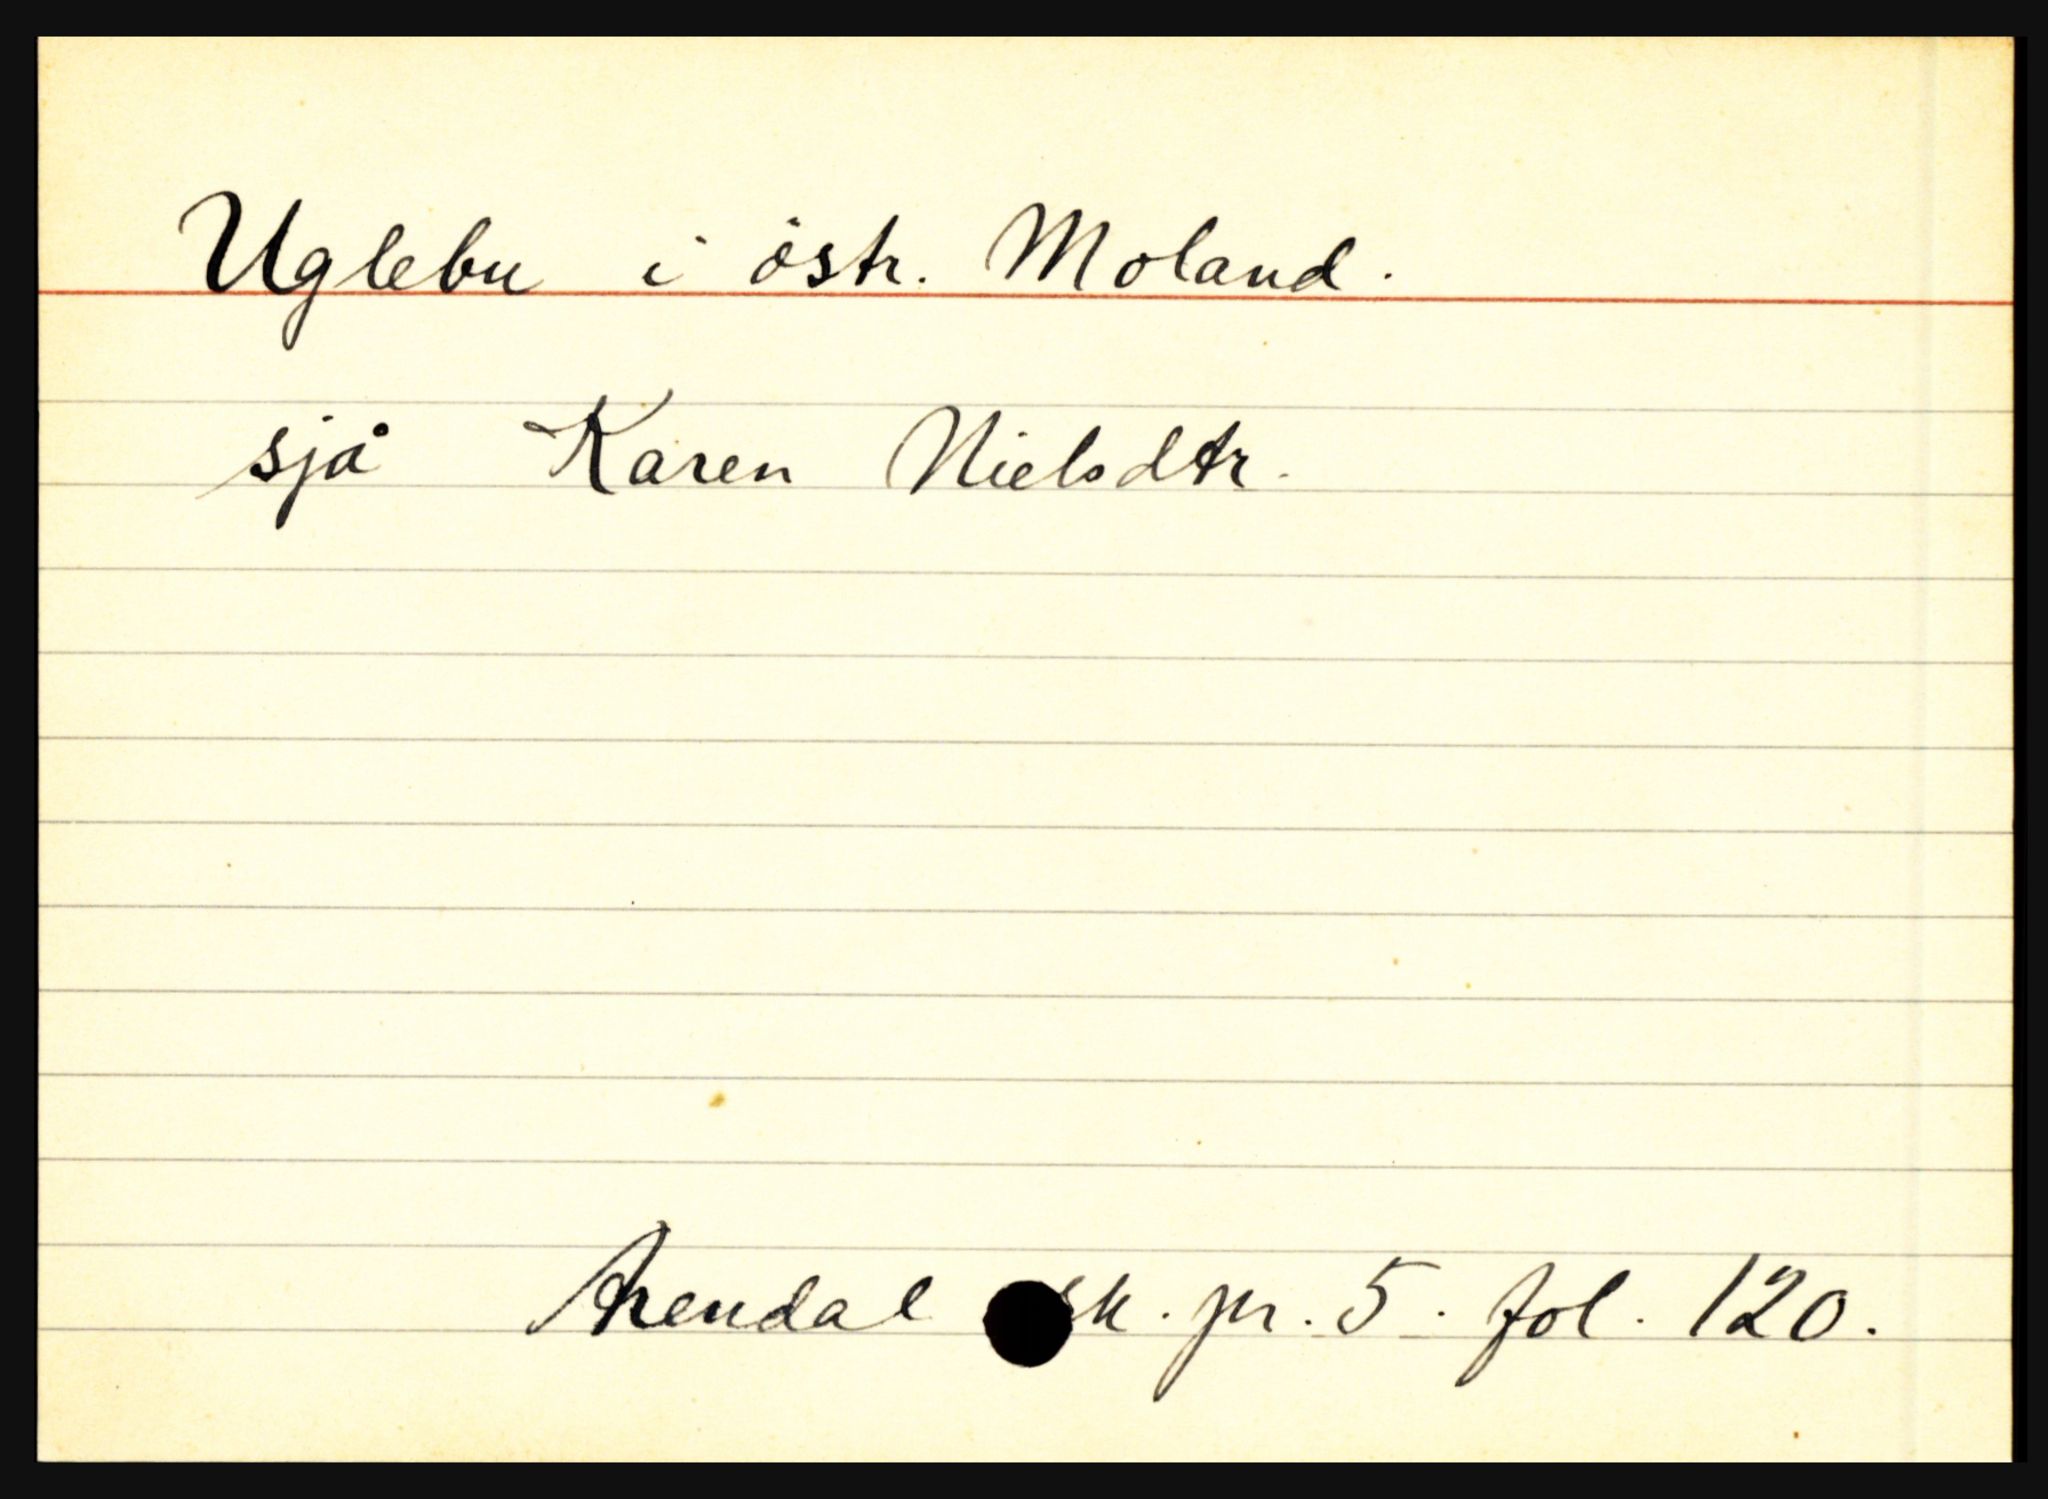 Uglebu i östr. Moland.
sjå Karen Nielsdtr.
Arendal sk. pr. 5. fol. 120.